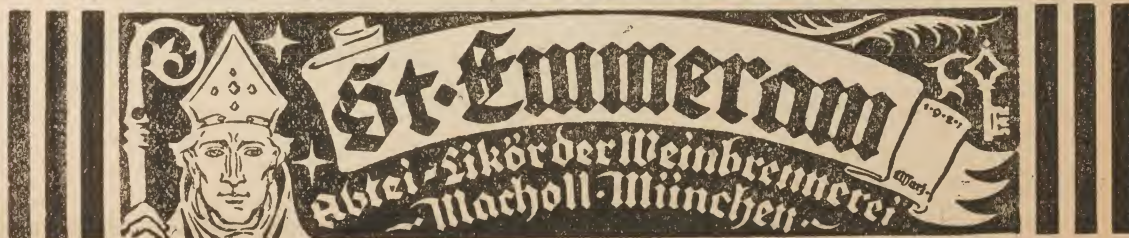 St. Emmeram
Abtei-Likör der Weinbrennerei
Macholl-München
1921